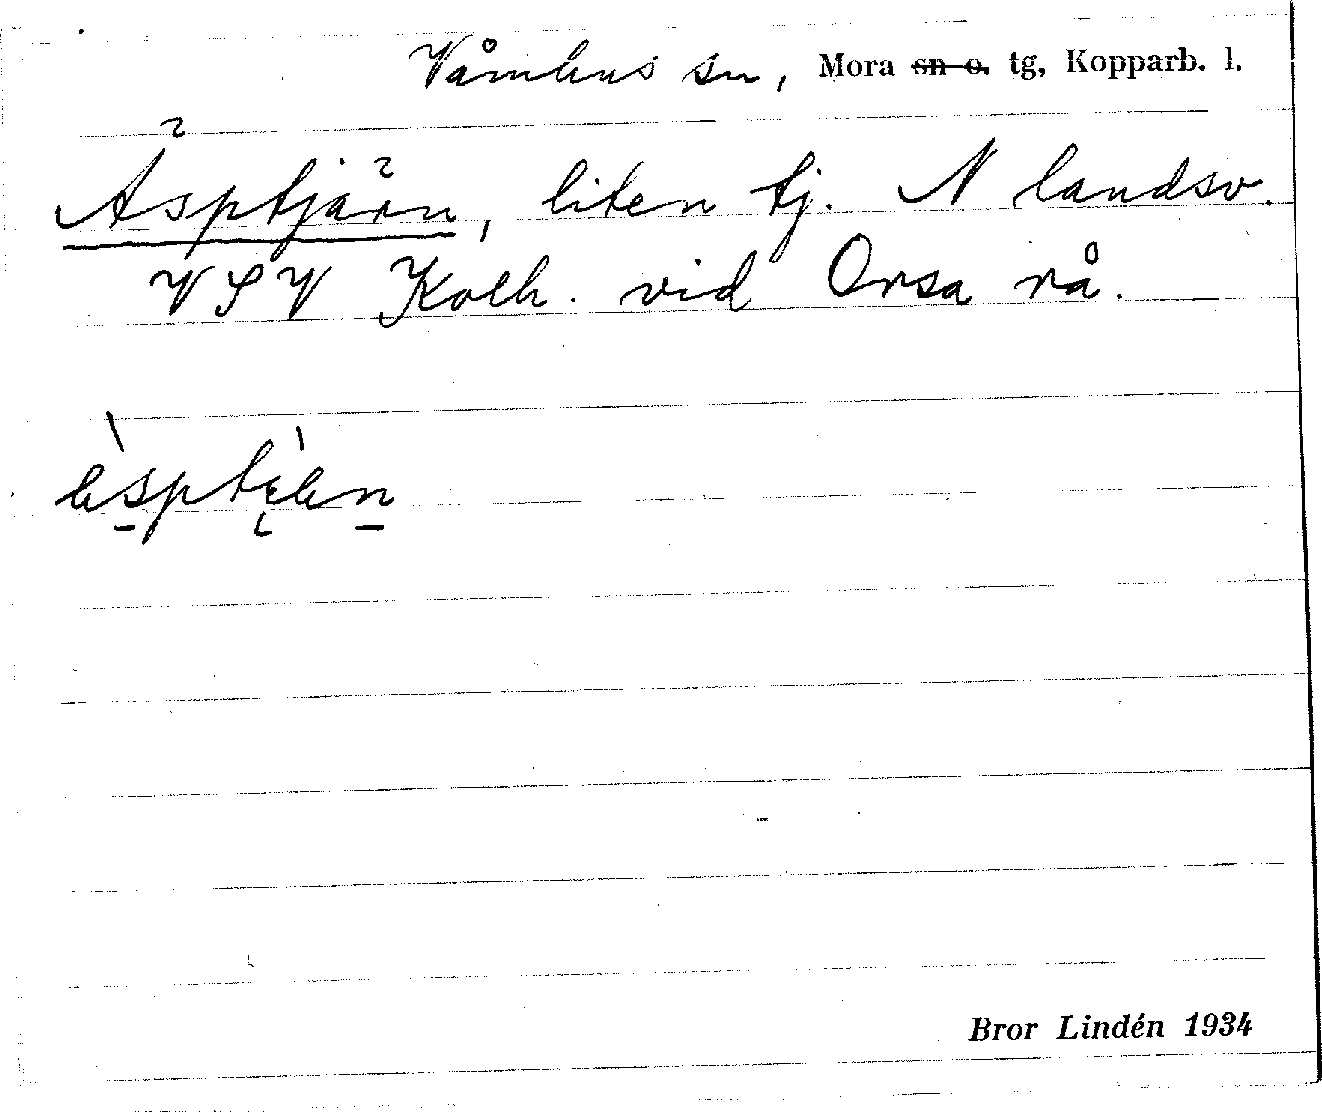 Våmhus sn, Mora sn o. tg, Kopparb. l.
Äsptjärn, liten tj. N landsv.
VSV Kolh. vid Orsa rå.
Bror Lindén 1934